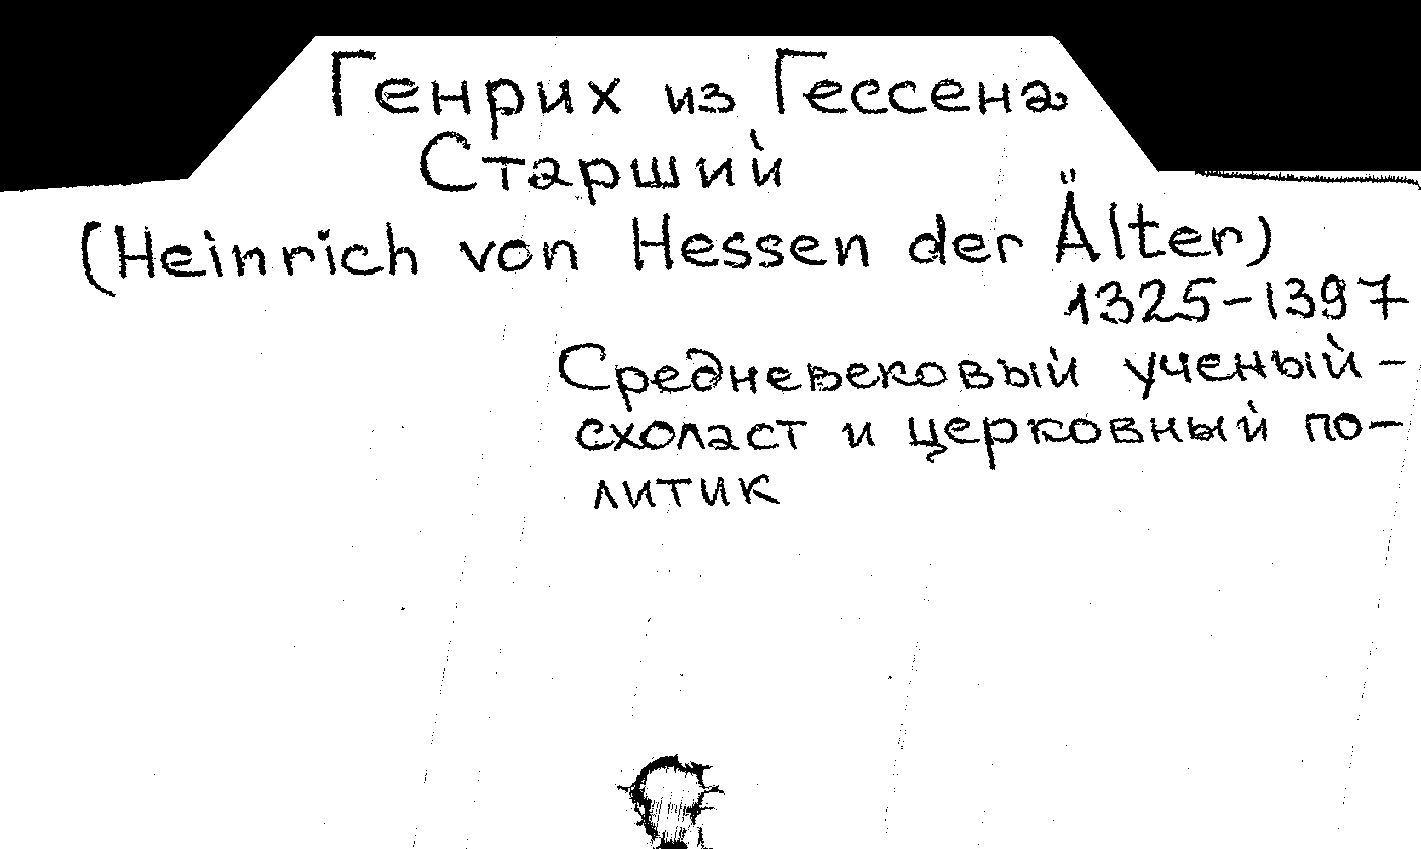 Генрих из Гессена
Старший
(Heinrich von Hessen der Älter)
1325-1397
Средневековый ученый-
схоласт и церковный по-
литик